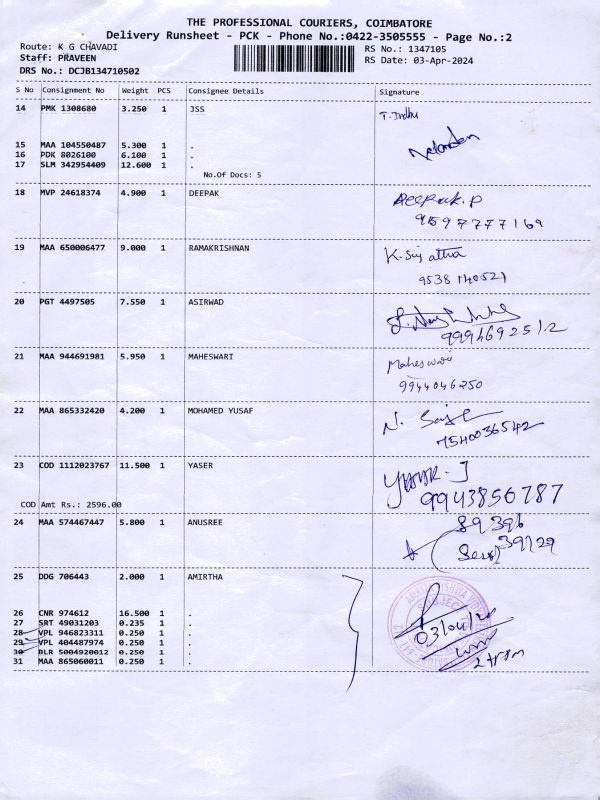 THE PROFESSIONAL COURIERS, COIMBATORE
Delivery Runsheet - PCK - Phone No.:0422-3505555 - Page No.:2
Route: K G CHAVADI
RS No.: 1347105
Staff: PRAVEEN
RS Date: 03-Apr-2024
DRS No.: DCJB134710502
S No Consignment No Weight PCS Consignee Details Signature
14 PMK 1308680 3.250 1 JSS
15 MAA 104550487 5.300 1 .
16 PDK 8026100 6.100 1 .
17 SLM 342954409 12.600 1 .
No.Of Docs: 5
18 MVP 24618374 4.900 1 DEEPAK Deepak.P
9597777169
19 MAA 650006477 9.000 1 RAMAKRISHNAN K.Sujatha
9538140521
20 PGT 4497505 7.550 1 ASIRWAD
9994692512
21 MAA 944691981 5.950 1 MAHESWARI Maheswari
9944046250
22 MAA 865332420 4.200 1 MOHAMED YUSAF
7540036542
23 COD 1112023767 11.500 1 YASER YASAR.J
9943856787
COD Amt Rs.: 2596.00
24 MAA 574467447 5.800 1 ANUSREE 89396
39129
25 DDG 706443 2.000 1 AMIRTHA
26 CNR 974612 16.500 1 .
27 SRT 49031203 0.235 1 .
28 VPL 946823311 0.250 1 .
29 VPL 404487974 0.250 1 .
30 BLR 5004920012 0.250 1 .
31 MAA 865060011 0.250 1 .